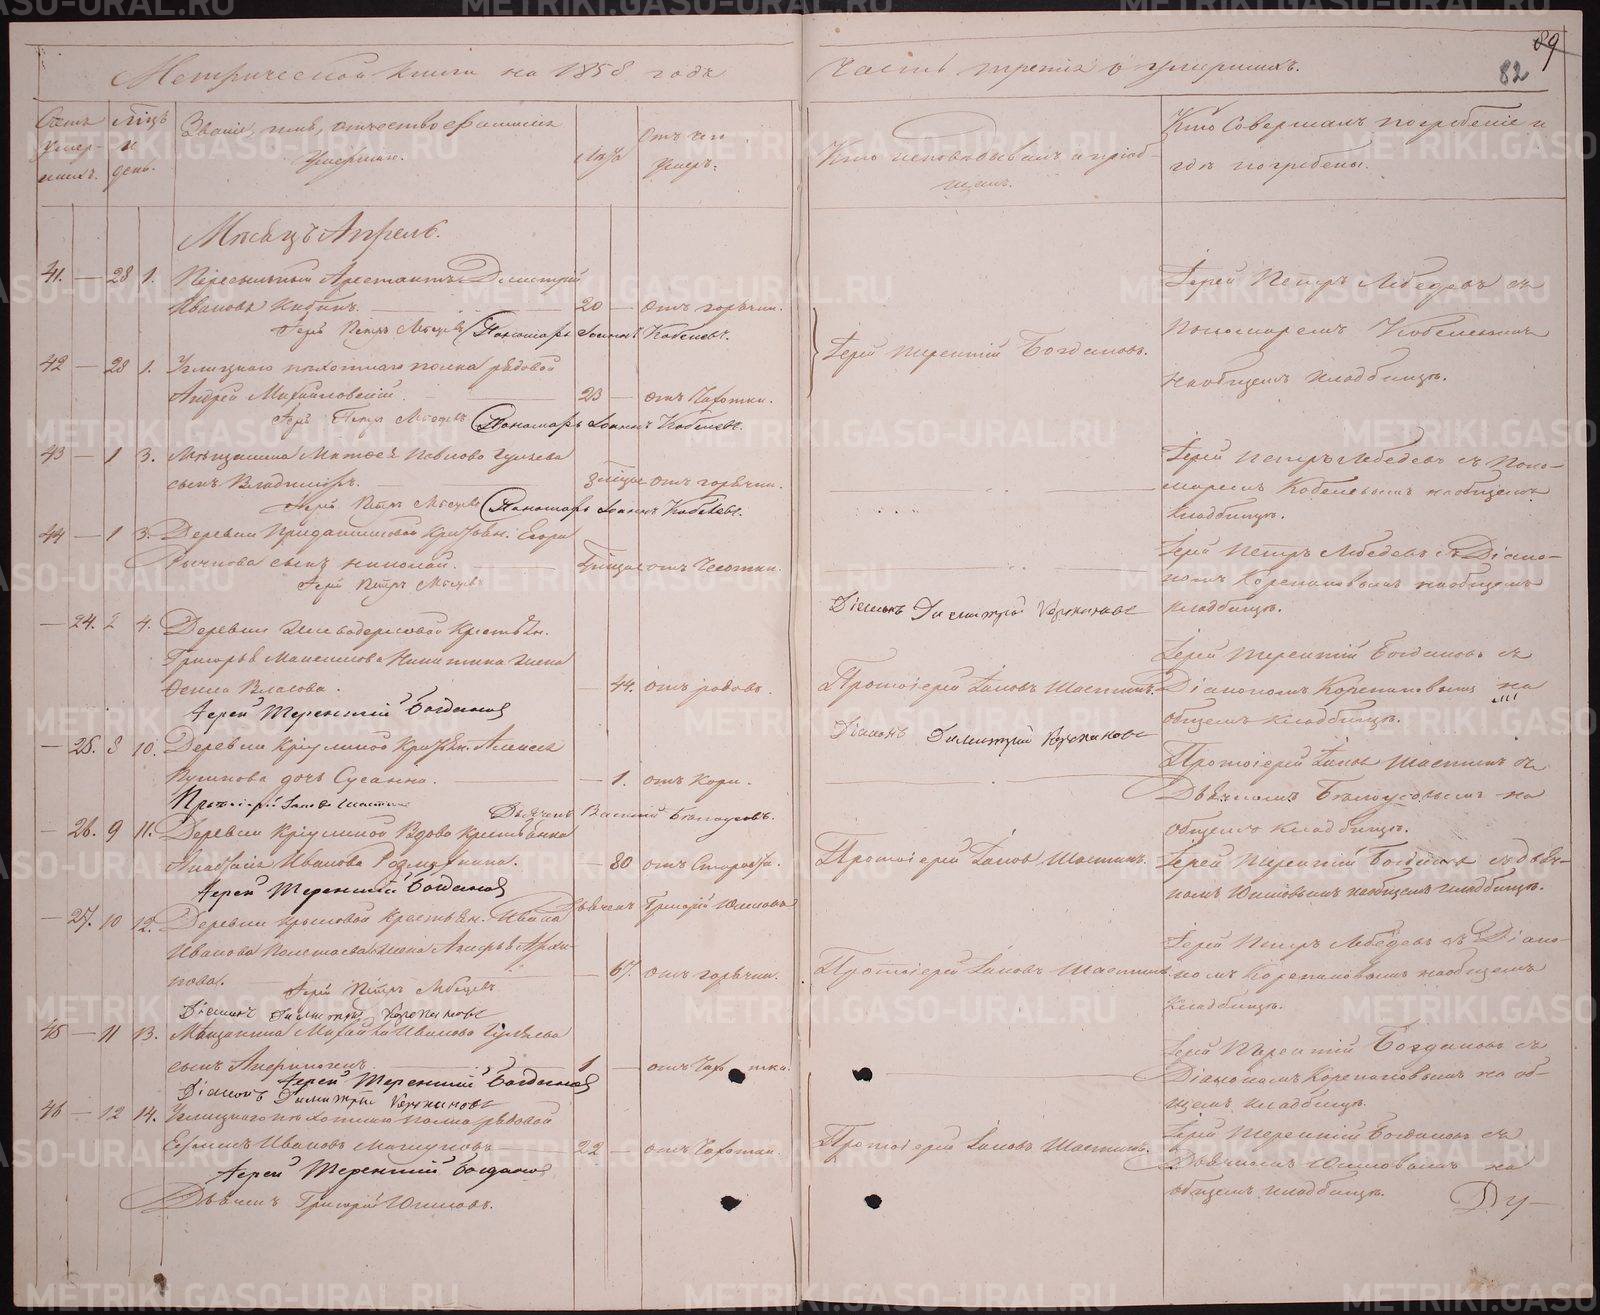 Метрической книги на 1858 годъ
Часть третія о умершихъ.
89
82
Счетъ умер-шихъ.
Мѣсяцъ и день.
Званіе, имя, отчество и фамилія
умершаго.
Лѣта
Отъ чего
умеръ.
Кто исповѣдывалъ и пріоб-
щалъ.
Кто совершалъ погребеніе и
гдѣ погребены.
Мѣсяцъ Апрель.
41. — 28 1. Пересыльный Арестантъ Дмитрій
Ивановъ 20 — отъ горячки.
Іерей Петръ Лебедевъ Пономарь Іоаннъ Кобелевъ.
Іерей Петръ Лебедевъ съ
Пономаремъ Кобелевымъ
на общемъ кладбищѣ.
42 — 28 1. Углицкаго пѣхотнаго полка рядовой
Андрей Михайловскій. 23 — отъ Чахотки.
Іерей Петръ Лебедевъ Пономарь Іоаннъ Кобелевъ.
Іерей Терентій Богдановъ.
43 — 1 3. Мѣщанина Матвея Павлова Гуляева
сынъ Владиміръ. отъ горячки.
Іерей Петръ Лебедевъ Пономарь Іоаннъ Кобелевъ.
Іерей Петръ Лебедевъ съ Поно-
маремъ Кобелевымъ на общемъ
кладбищѣ.
44 — 1 3. Деревни Приданниковой Егора
сынъ Николай.
Іерей Петръ Лебедевъ
Іерей Петръ Лебедевъ съ Діако-
номъ Корепановымъ на общемъ
кладбищѣ.
Діаконъ Димитрій Корепановъ
— 24. 2 4. Деревни
Григорья Никитина жена
Власова. — 44. отъ родовъ.
Іерей Терентій Богдановъ
Протоіерей Іаковъ Шастинъ.
Іерей Терентій Богдановъ съ
Діакономъ Корепановымъ на
общемъ кладбищѣ.
Діаконъ Димитрій Корепановъ
— 25. 8 10. Деревни Алексѣя
дочь Сусанна. — 1. отъ Кори.
Протоіерей Іаковъ Шастинъ Дьячекъ Василій Бѣлоусовъ.
Протоіерей Іаковъ Шастинъ съ
Дьячкомъ Бѣлоусовымъ на
общемъ кладбищѣ.
— 26. 9 11. Деревни Вдова
Анастасія Иванова — 80 отъ Старости.
Іерей Терентій Богдановъ
Дьячекъ Григорій Юшковъ
Протоіерей Іаковъ Шастинъ.
Іерей Терентій Богдановъ съ дьяч-
комъ Юшковымъ на общемъ кладбищѣ.
— 27. 10 12. Деревни Ивана
Иванова жена Архи-
пова. — 67. отъ горячки.
Іерей Петръ Лебедевъ
Діаконъ Димитрій Корепановъ
Протоіерей Іаковъ Шастинъ
Іерей Петръ Лебедевъ съ Діако-
номъ Корепановымъ на общемъ
кладбищѣ.
45 — 11 13. Мѣщанина Михайла Иванова Гуляева
сынъ 1 — отъ Чахотки.
Іерей Терентій Богдановъ
Діаконъ Димитрій Корепановъ
Іерей Терентій Богдановъ съ
Діакономъ Корепановымъ на об-
щемъ кладбищѣ.
46 — 12 14. Углицкаго пѣхотнаго полка рядовой
Ивановъ 22 — отъ Чахотки.
Іерей Терентій Богдановъ
Дьячекъ Григорій Юшковъ.
Протоіерей Іаковъ Шастинъ.
Іерей Терентій Богдановъ съ
Дьячкомъ Юшковымъ на
общемъ кладбищѣ.
Ду—
METRIKI.GASO-URAL.RU